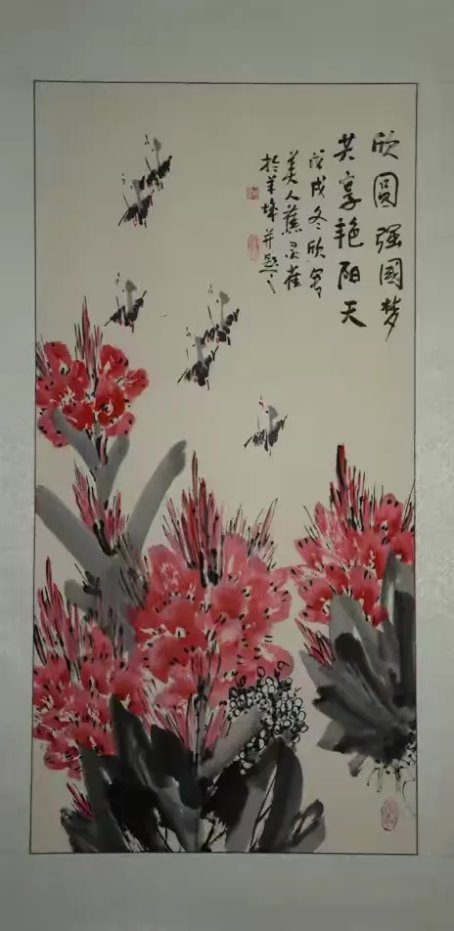 欣圆强国梦
共享艳阳天
戊戌冬欣写
美人蕉灵雀
於羊城并题之